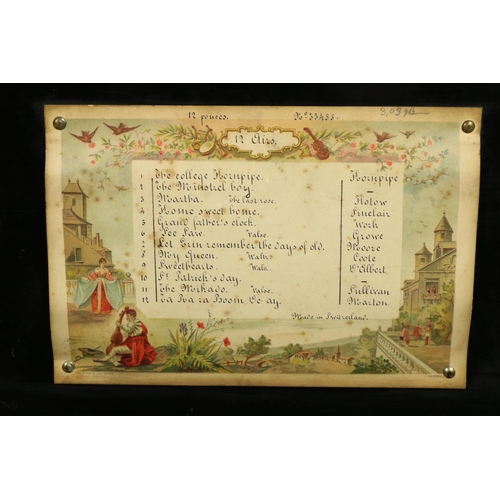 12 pouces. No 33435.
12 Airs,
1 The college Hornpipe. Hornpipe
2 The Minstrel boy. –
3 Martha. The last rose. Flotow
4 Home sweet home. Sinclair
5 Grand father's clock. Work
6 See Saw. Valse. Crowe
7 Let Erin remember the days of old. Moore
8 My Queen. Waltz. Coote
9 Sweethearts. Waltz. D'Albert
10 St Patrick's day. –
11 The Mikado. Valse. Sullivan
12 Ta Ra ra Boom De ay. Morton
Made in Switzerland.